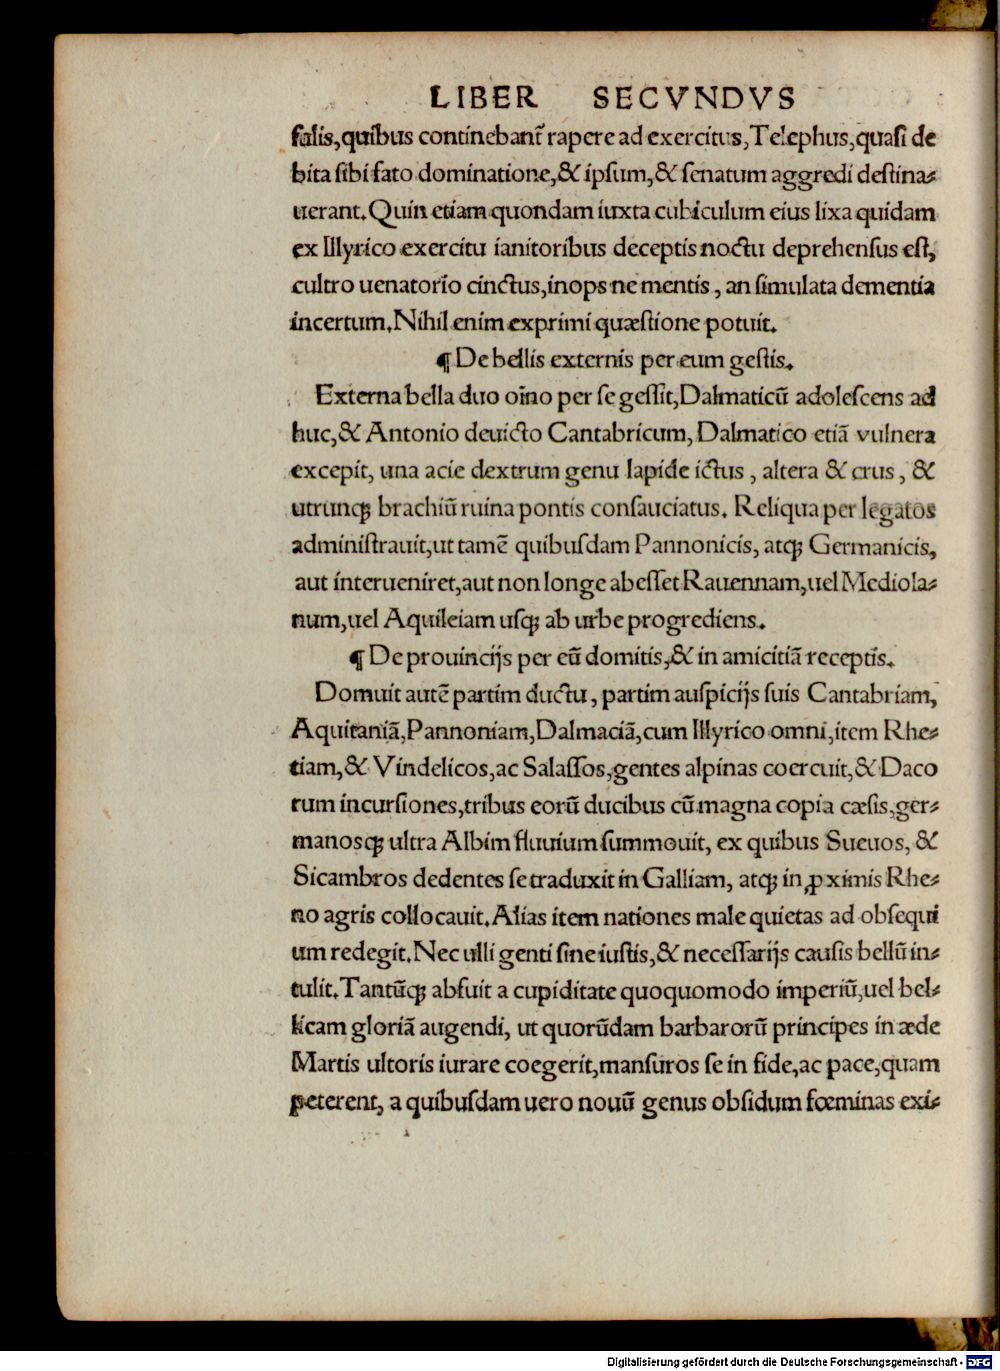 LIBER SECVNDVS
ſulis,quibus continebant̃ rapere ad exercitus,Telephus,quaſi de
bita ſibi fato dominatione,& ipſum,& ſenatum aggredi deſtina-
uerant.Quin etiam quondam iuxta cubiculum eius lixa quidam
ex Illyrico exercitu ianitoribus deceptis noctu deprehenſus eſt,
cultro uenatorio cinctus,inops ne mentis, an ſimulata dementia
incertum.Nihil enim exprimi quæſtione potuit.
¶De bellis externis per eum geſtis.
Externa bella duo oĩno per ſe geſſit,Dalmaticũ adoleſcens ad
huc,& Antonio deuicto Cantabricum, Dalmatico etiã vulnera
excepit, una acie dextrum genu lapide ictus, altera & crus, &
utrunqꝫ brachiũ ruina pontis conſauciatus. Reliqua per legatos
adminiſtrauit,ut tamẽ quibuſdam Pannonicis, atqꝫ Germanicis,
aut interueniret,aut non longe abeſſet Rauennam,uel Mediola-
num,uel Aquileiam uſqꝫ ab urbe progrediens.
¶De prouincijs per eũ domitis,& in amicitiã receptis.
Domuit autẽ partim ductu, partim auſpicijs ſuis Cantabriam,
Aquitaniã,Pannoniam,Dalmaciã,cum Illyrico omni,item Rhe-
tiam,& Vindelicos,ac Salaſſos,gentes alpinas coercuit,& Daco
rum incurſiones,tribus eorũ ducibus cũ magna copia cæſis,ger-
manosqꝫ ultra Albim fluuium ſummouit, ex quibus Sueuos, &
Sicambros dedentes ſe traduxit in Galliam, atqꝫ in ꝓximis Rhe-
no agris collocauit.Alias item nationes male quietas ad obſequi
um redegit.Nec ulli genti ſine iuſtis,& neceſſarijs cauſis bellũ in-
tulit.Tantũqꝫ abfuit a cupiditate quoquomodo imperiũ,uel bel-
licam gloriã augendi, ut quorũdam barbarorũ principes in æde
Martis ultoris iurare coegerit,manſuros ſe in fide,ac pace,quam
peterent, a quibuſdam uero nouũ genus obſidum fœminas exi-
Digitalisierung gefördert durch die Deutsche Forschungsgemeinschaft - DFG